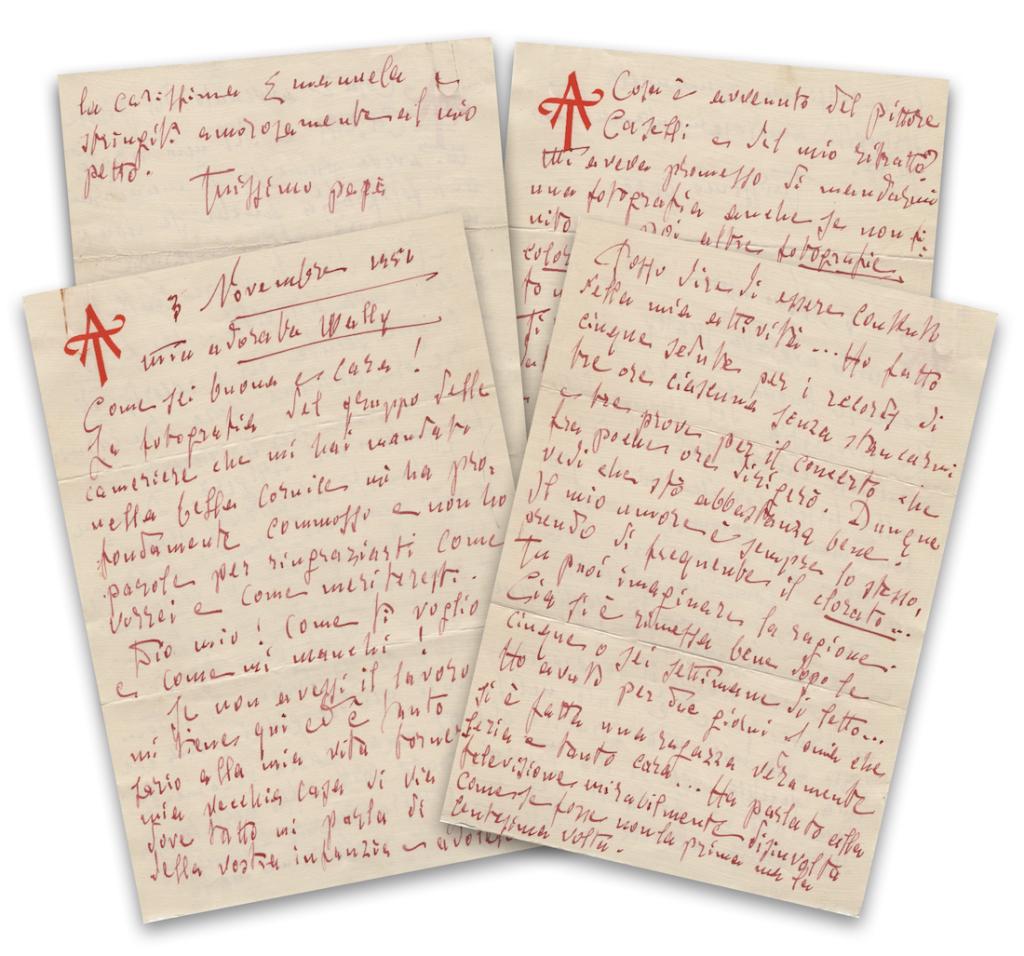 3 Novembre 1951
mia adorata Wally
Come sei buona e cara!
La fotografia del gruppo delle
cameriere che mi hai mandata
nella bella cornice mi ha pro-
fondamente commosso e non ho
parole per ringraziarti come
vorrei e come meriteresti.
Dio mio! Come ti voglio
e come mi manchi!
Se non avessi il lavoro
mi tiene qui ed è tanto
sario alla mia vita
mia vecchia casa di via
dove tutto mi parla di
della vostra infanzia e
Cosa è avvenuto del pittore
Caselli e del mio ritratto?
Mi aveva promesso di mandarmi
una fotografia anche se non fi-
nito. Poi altre fotografie
Posso dire di essere contento
della mia attività... Ho fatto
cinque sedute per i records di
tre ore ciascuna senza stancarmi
e tre prove per il concerto che
fra poche ore dirigerò. Dunque
vedi che stò abbastanza bene!
Il mio umore è sempre lo stesso,
prendo di frequente il clorato...
Tu puoi immaginare la ragione.
Cia si è rimessa bene dopo le
cinque o sei settimane di letto...
Ho avuto per due giorni Sonia che
si è fatta una ragazza veramente
seria e tanto cara... Ha parlato alla
televisione mirabilmente disinvolta
come se fosse non la prima ma la
centesima volta.
la carissima Emanuela e
stringiti amorosamente al mio
petto.
Tuissimo papà